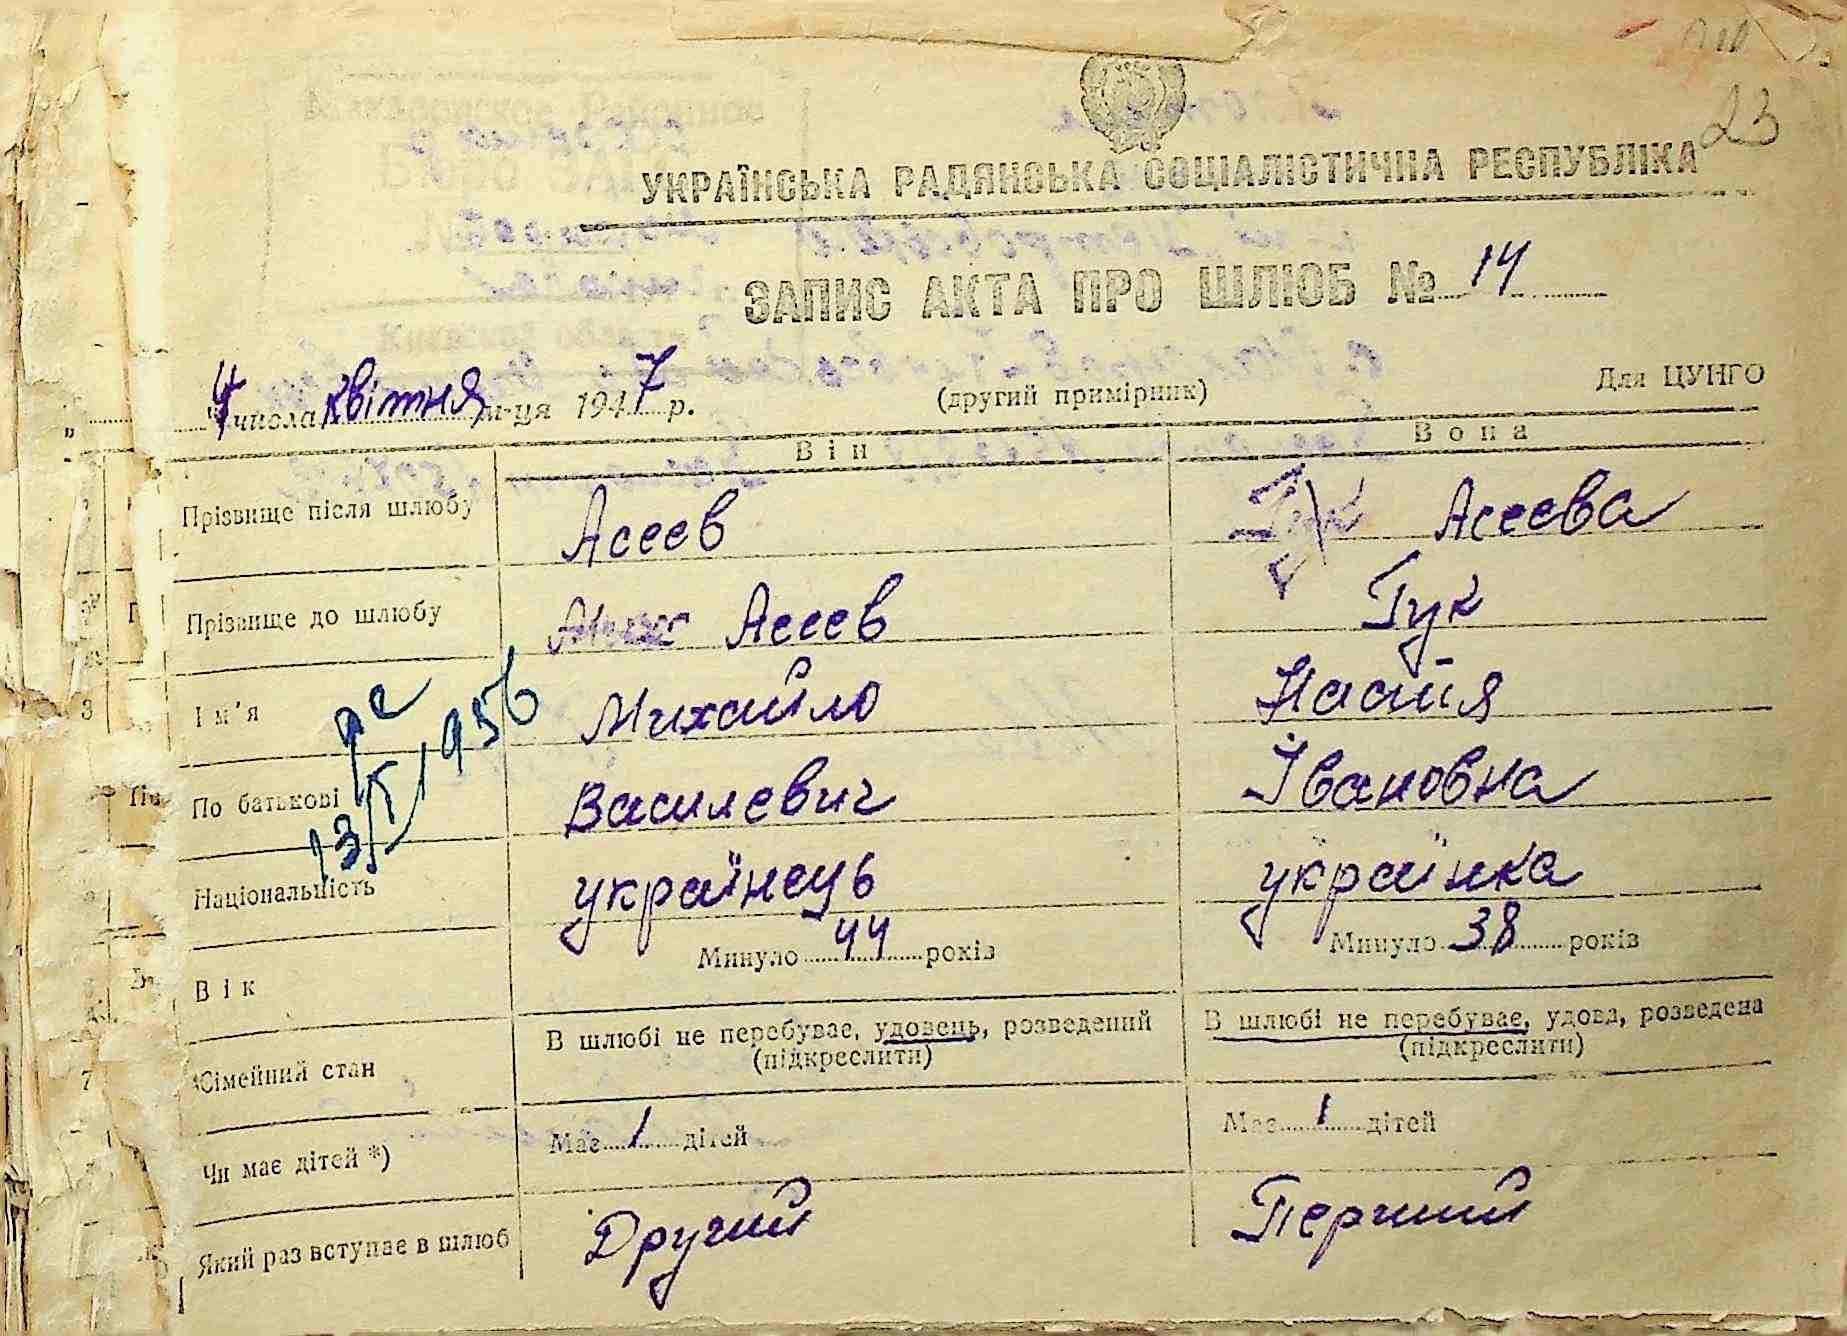 23
УКРАЇНСЬКА РАДЯНСЬКА СОЦІАЛІСТИЧНА РЕСПУБЛІКА
ЗАПИС АКТА ПРО ШЛЮБ № 14
"4" числа квітня м-ця 1947 р. (другий примірник) Для ЦУНГО
Він Вона
Прізвище після шлюбу Асеев Гук Асеєва
Прізвище до шлюбу Асеев Гук
Ім'я Михайло Настя
По батькові Василевич Івановна
Національність українець українка
Вік Минуло 44 років Минуло 38 років
Сімейний стан В шлюбі не перебуває, удовець, розведений (підкреслити) В шлюбі не перебуває, удова, розведена (підкреслити)
Чи має дітей *) Має 1 дітей Має 1 дітей
Який раз вступає в шлюб Другий Перший